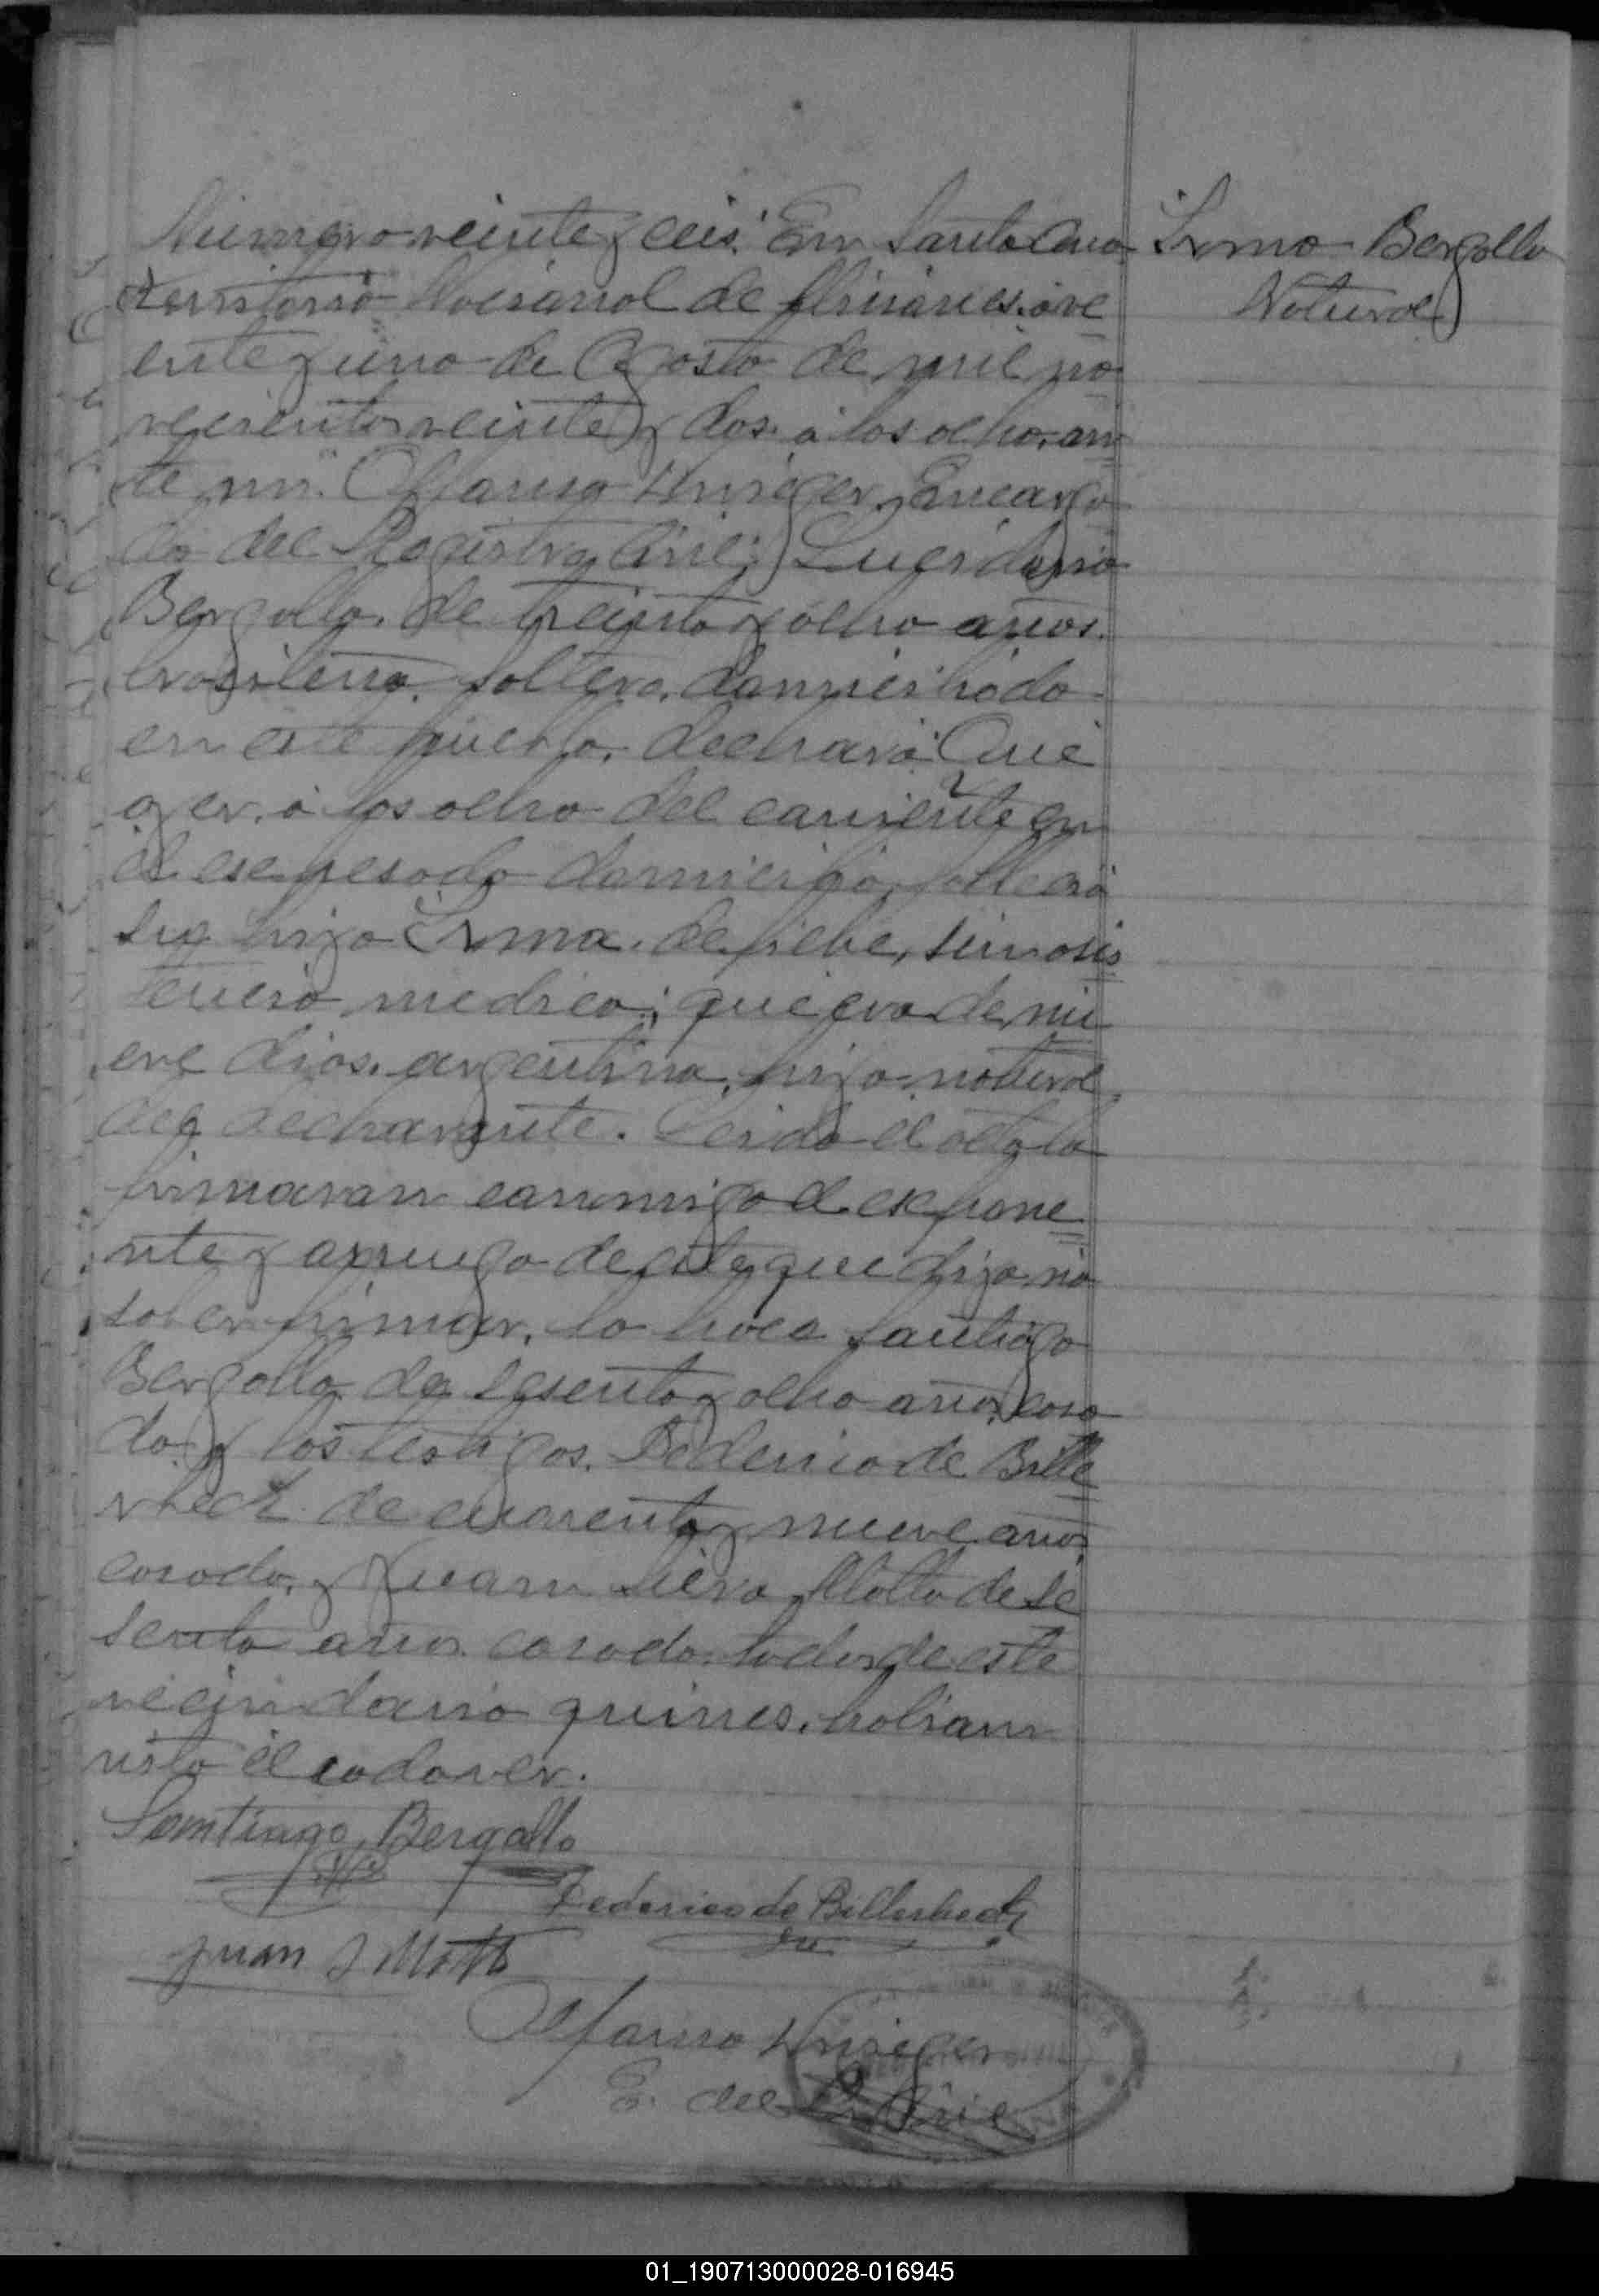 Numero veinte y seis. En Santa Ana
territorio Nacional de Misiones. a ve
inte y uno de Agosto de mil no
vecientos veinte y dos. a las ocho. an
te mi. Encarga
do del Registro Civil; Lucidoria
Bergallo. de treinta y ocho años.
brasilera. soltera. domiciliada
en este pueblo. declaró: Que
ayer. a las ocho del corriente en
el expresado domicilio, fallecio
su hija Irma. de fiebre, sin asis
tencia medica; que era de nu
eve dias. argentina, hija natural
del declarante. Leida el acta la
firmaron conmigo el expone
nte y a ruego de este que dijo no
saber firmar. lo hace Santiago
Bergallo de sesenta y ocho años, casa
do. y los testigos. Federico de Bille
rbeck de cuarenta y nueve años
casado, y Juan Silva Motta de se
senta años. casado. todos de este
vecindario quienes. habian
visto el cadaver.
Santiago Bergallo
Federico de Billerbeck
Juan S Motta
E. del R. Civil
Irma Bergallo
Natural
01_190713000028-016945